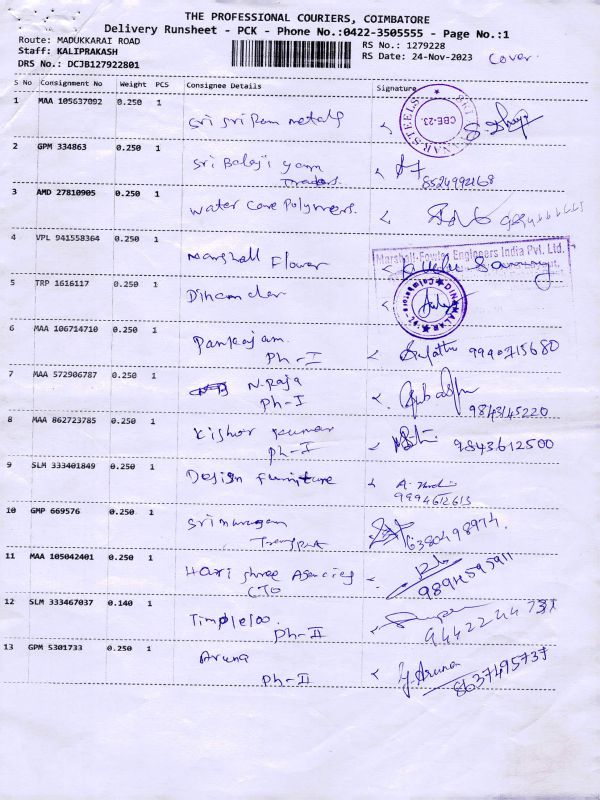 THE PROFESSIONAL COURIERS, COIMBATORE
Delivery Runsheet - PCK - Phone No.:0422-3505555 - Page No.:1
Route: MADUKKARAI ROAD
RS No.: 1279228
Staff: KALIPRAKASH
RS Date: 24-Nov-2023
Cover.
DRS No.: DCJB127922801
S No Consignment No Weight PCS Consignee Details Signature
1 MAA 105637092 0.250 1 Sri Sri Ram metals
CBE-23.
2 GPM 334863 0.250 1 Sri Balaji yarn
Traders. 8524992168
3 AMD 27810905 0.250 1 Water Care Polymers.
4 VPL 941558364 0.250 1 Marshall Flower
Marshall-Fowler Engineers India Pvt. Ltd.
5 TRP 1616117 0.250 1 Dinamalar
6 MAA 106714710 0.250 1 Pankajam.
Ph-I 9940715680
7 MAA 572906787 0.250 1 N.Raja
Ph-I 9843145220
8 MAA 862723785 0.250 1 Kishor Kumar
Ph-I 9843612500
9 SLM 333401849 0.250 1 Design Furniture
9994612613
10 GMP 669576 0.250 1 Sri murugan
6380498974.
11 MAA 105042401 0.250 1 Hari Shree Agencies
CTO 9894595911
12 SLM 333467037 0.140 1
Ph-II 9442244737
13 GPM 5301733 0.250 1 Aruna
Ph-II Y. Aruna
8637495737